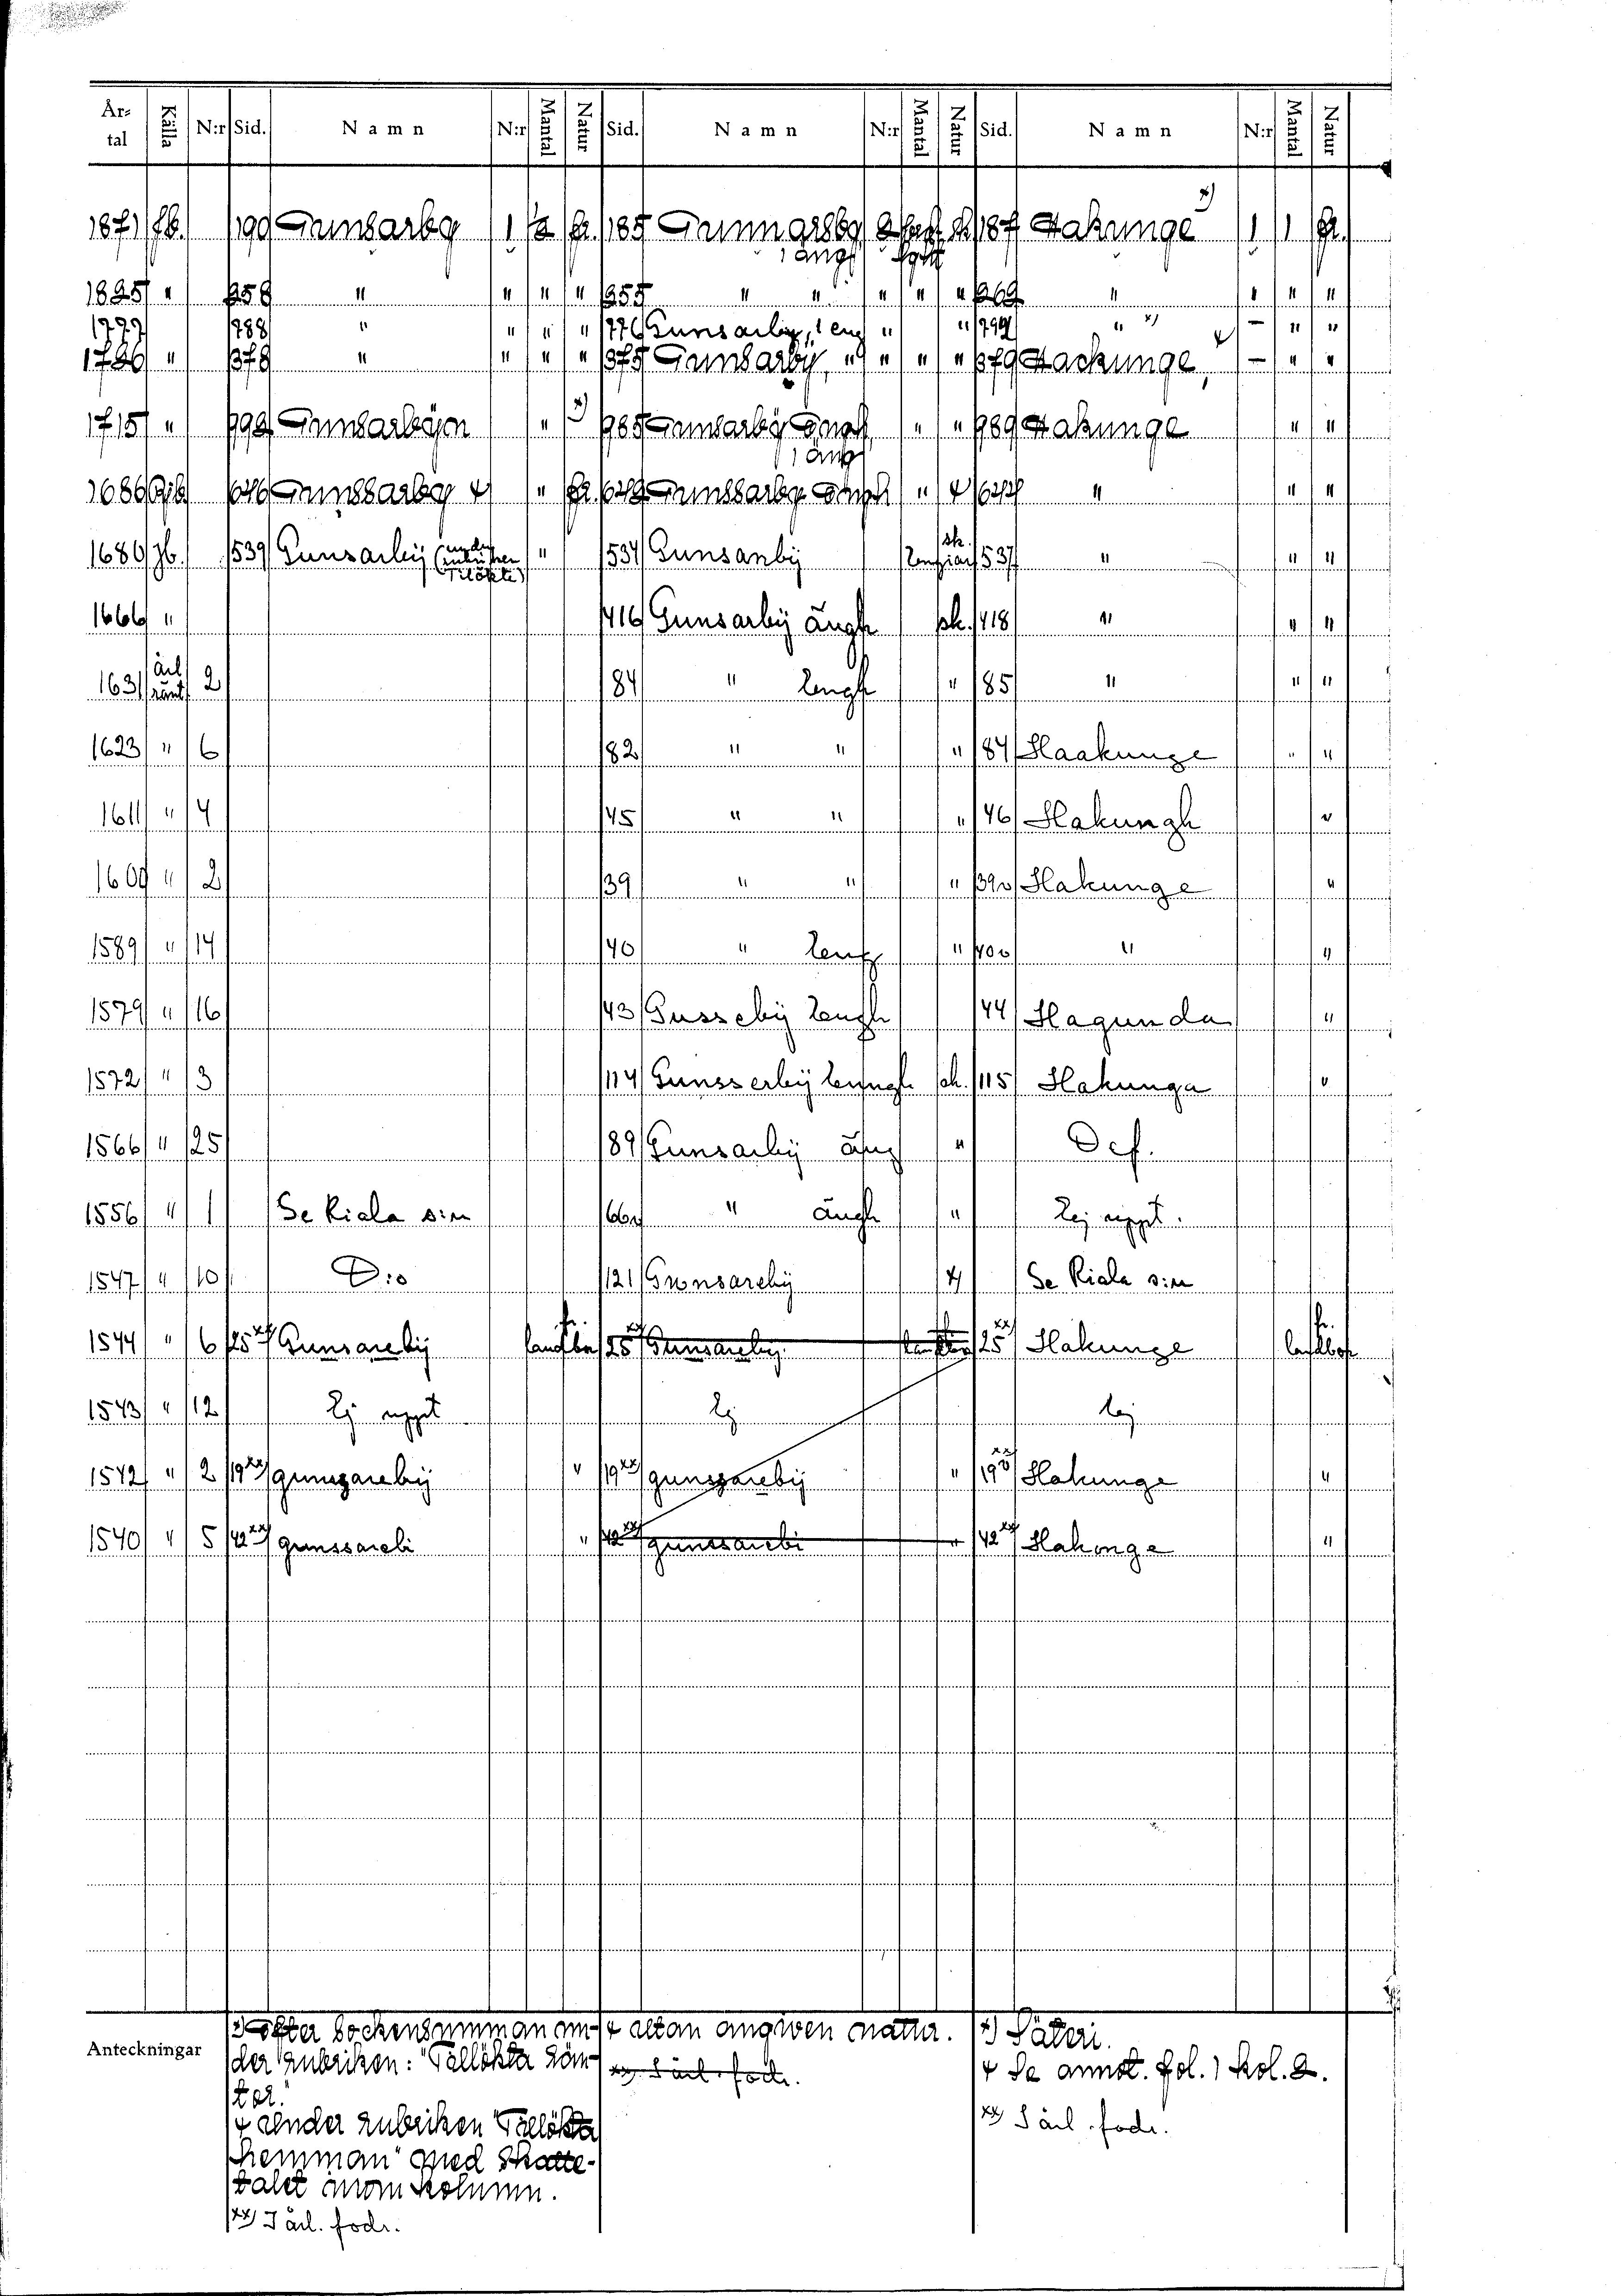 År-tal Källa N:r Sid. Namn N:r Mantal Natur Sid. Namn N:r Mantal Natur Sid. Namn N:r Mantal Natur
1871 Jb. 190 Gunsarby 1 185 Gunnarsby 187 Hakunge x) 1 1 fr.
1 äng
1825 " 258 " " " " 255 " " " " " 269 " " " "
1777 788 " " " " 776 Gunsarby, 1 eng " " 799 " x) — " "
1726 " 378 " " " " 375 Gunsarby, " " " " 379 Hackunge, — " "
1715 " 998 Gunsarbyn " x) 985 Gunsarby Engh " " 989 Hakunge " "
1 äng
1686 646 Gunssarby + " fr. Gunssarby Engh " + " " "
1680 Jb. 539 Gunsarby (under rubriken Tilökte) " 534 Gunsarby sk. 537 " " "
1666 " 416 Gunsarbÿ ängh sk. 418 " " "
1631 årl ränt 2 84 " Lengh " 85 " " "
1623 " 6 82 " " " 84 Haakunge " "
1611 " 4 45 " " " 46 Hakungh "
1600 " 2 39 " " " 39v Hakunge "
1589 " 14 40 " Leng " 40v " "
1579 " 16 43 Gussebÿ Lengh 44 Hagunda "
1572 " 3 114 Gunsserbÿ Lenngh sk. 115 Hakunga "
1566 " 25 89 Gunsarbÿ äng " Def.
1556 " 1 Se Riala s:n 66v " ängh " Ej uppt.
1547 " 10 D:o 121 Gunsarebÿ + Se Riala s:n
1544 " 6 25 xx) Gunsarebÿ fr. landbor 25 xx) Gunsareby 25 xx) Hakunge fr. landbor
1543 " 12 Ej uppt Ej Ej
1542 " 2 19 xx) gunszarebÿ " 19 xx) gunszarebÿ " 19 xx) Hakunge "
1540 " 5 42 xx) gunssarebi " 42 xx) gunssarebi " 42 xx) Hakonge "
Anteckningar
x) Efter sockensumman un-
der rubriken: "Tillökta
+ under rubriken "Tillökta
hemman" med skatte-
talet inom kolumn.
xx) Särl. fodr.
+ utan angiven natur.
xx) Särl. fodr.
x) Säteri.
+ Se annot. fol. 1 kol. 2.
xx) Särl. fodr.